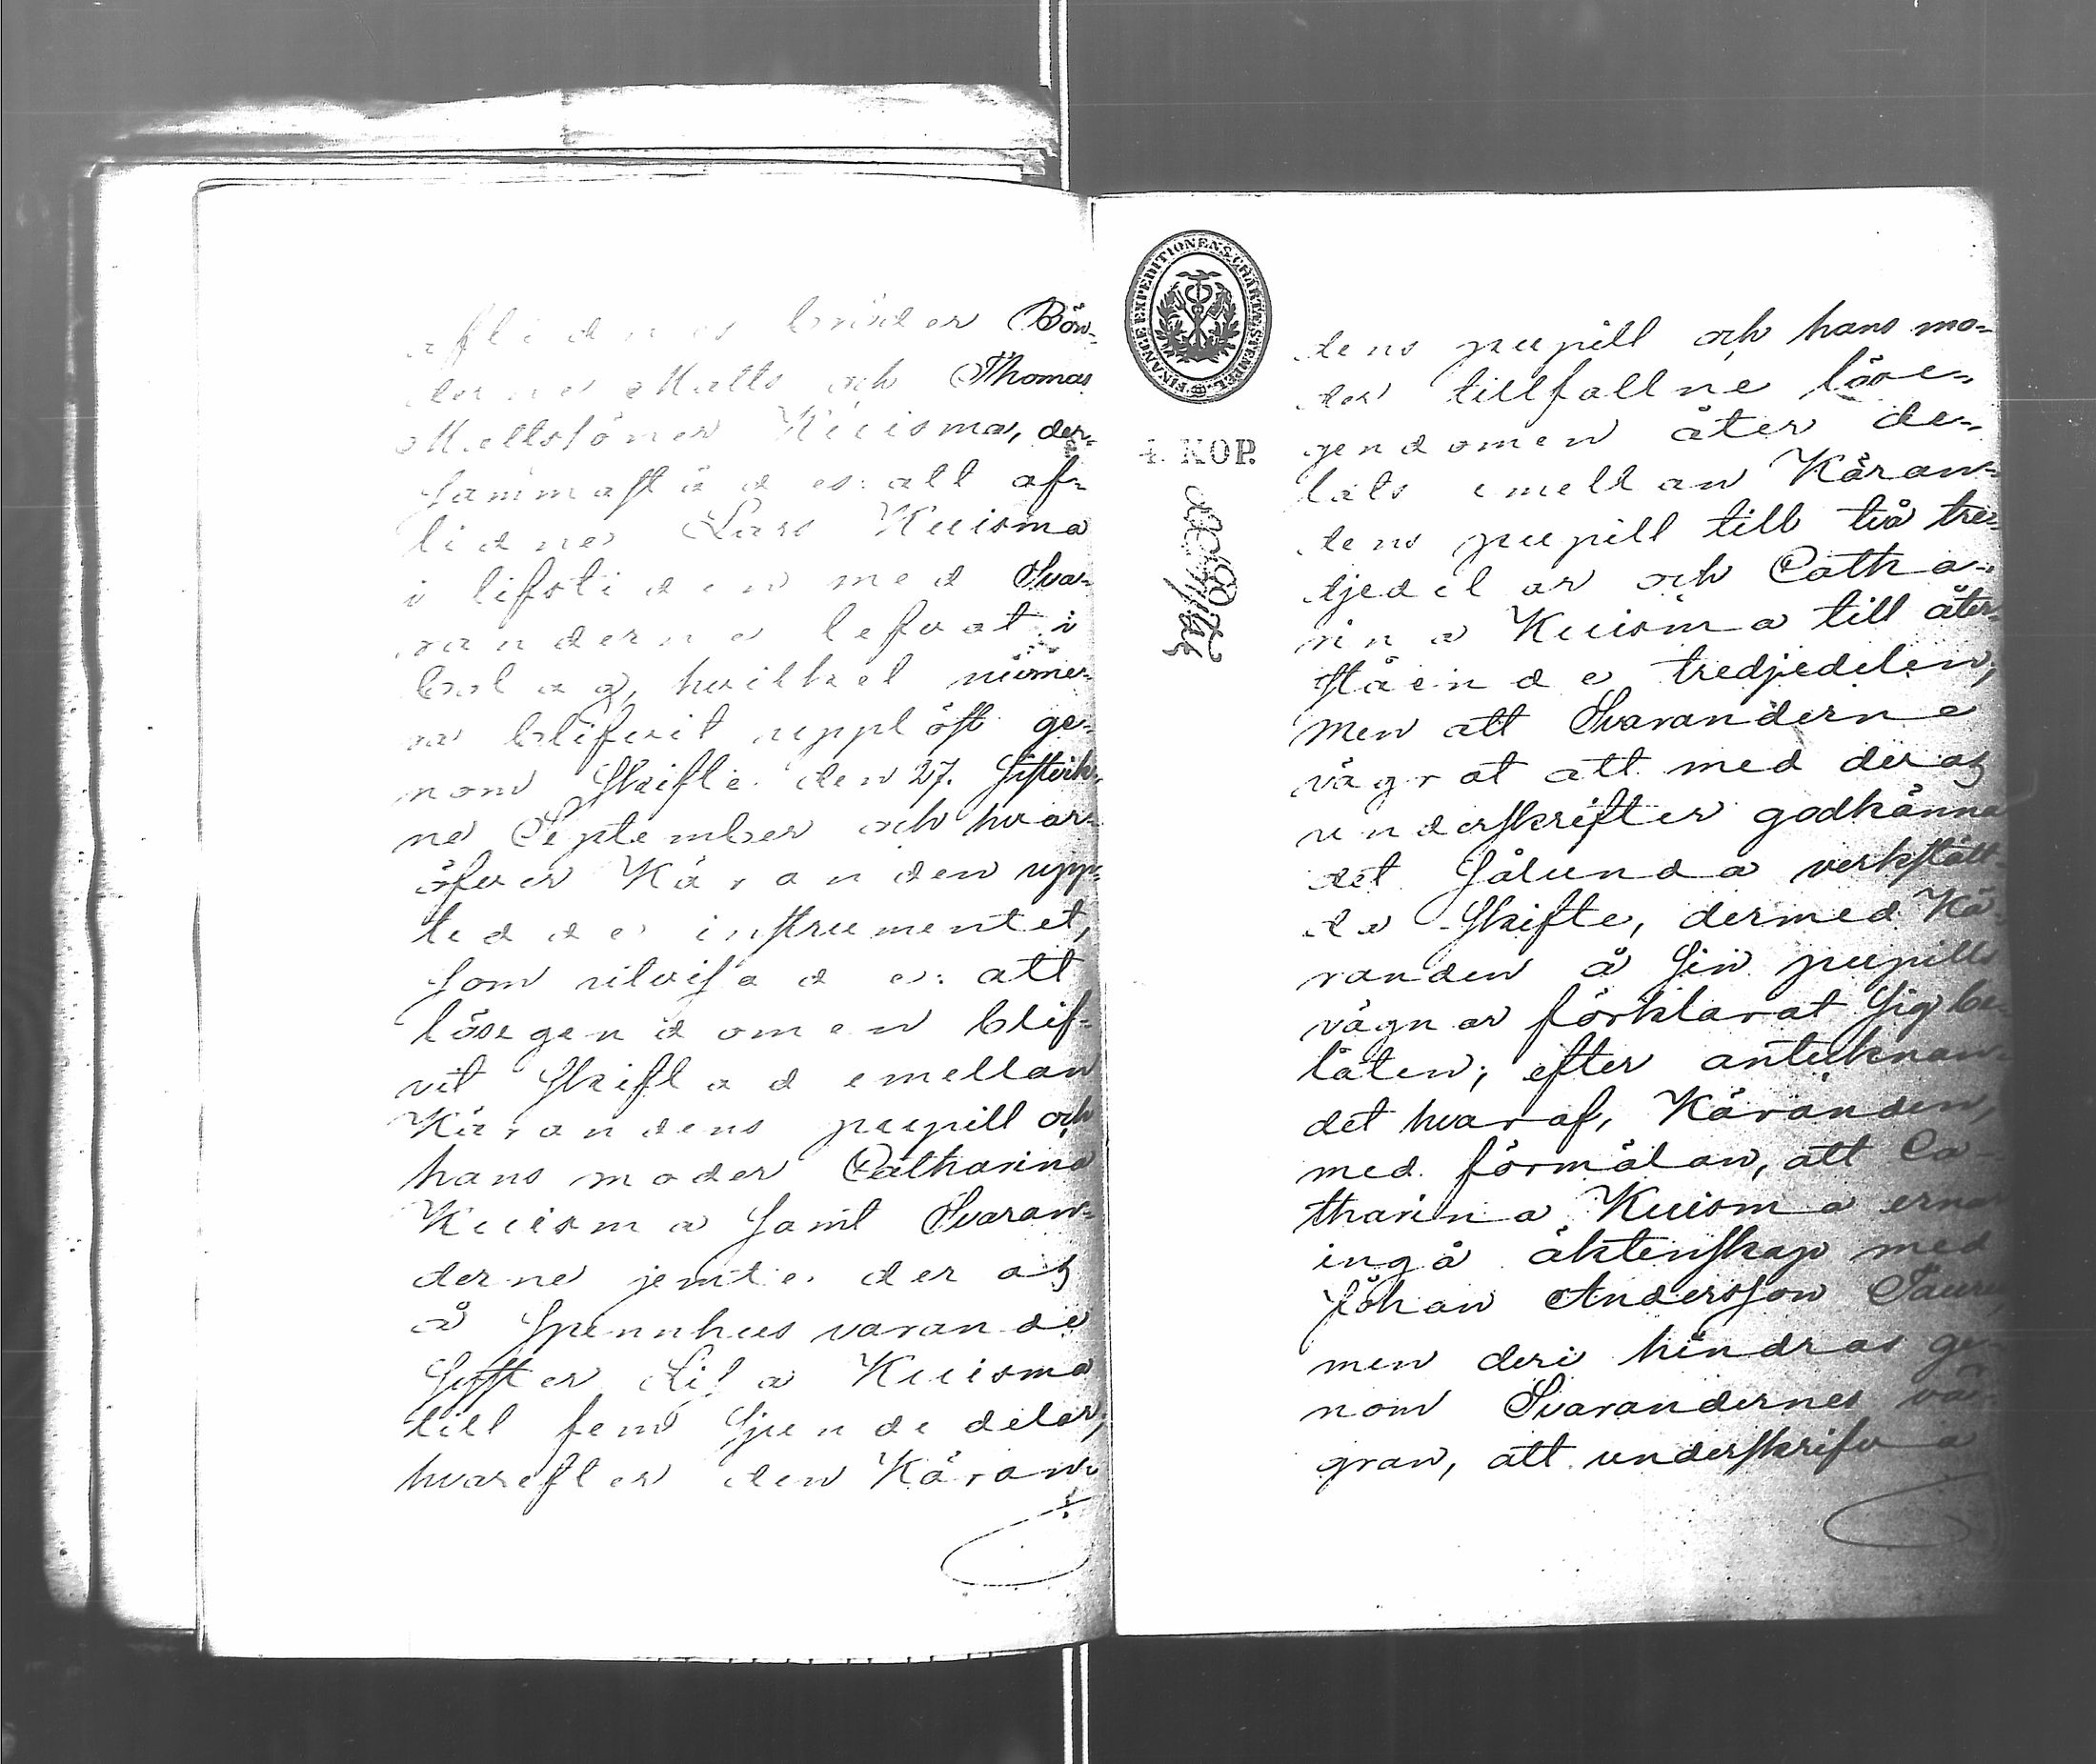 aflidnes bröder Bön-
derne Matts och Thomas
Mattssöner Kuisma, der-
sammastädes: att af-
lidne Lars Kuisma
i lifstiden med Sva-
randerne lefvat i
bolag, hvilket numer-
a blifvit upplöst ge-
nom skifte den 27. sistvik-
ne September och hvar-
öfver Käranden upp-
tedde instrumentet,
som utvisade: att
lösegendomen blif-
vit skiftad emellan
Kärandens pupill och
hans moder Catharina
Kuisma samt Svaran-
derne jemte deras
å Spinnhus varande
syster Lisa Kuisma
till fem sjundedelar,
hvarefter den Käran-
FINANCE EXPEDITIONENS CHARTÆ STEMPEL
4. KOP.
dens pupill och hans mo-
der tillfallne löse-
gendomen åter de-
lats emellan Käran-
dens pupill till två tre-
djedelar och Catha-
rina Kuisma till åter-
stående tredjedelen,
men att Svaranderne
vägrat att med deras
underskrifter godkänna
det sålunda verkställ-
de skifte, dermed Kä-
randen å sin pupills
vägnar förklarat sig be-
låten; efter antecknan-
det hvaraf, Käranden,
med förmälan, att Ca-
tharina Kuisma ernar
ingå äktenskap med
Johan Andersson Tauru,
men deri hindras ge-
nom Svarandernes vä-
gran, att underskrifva